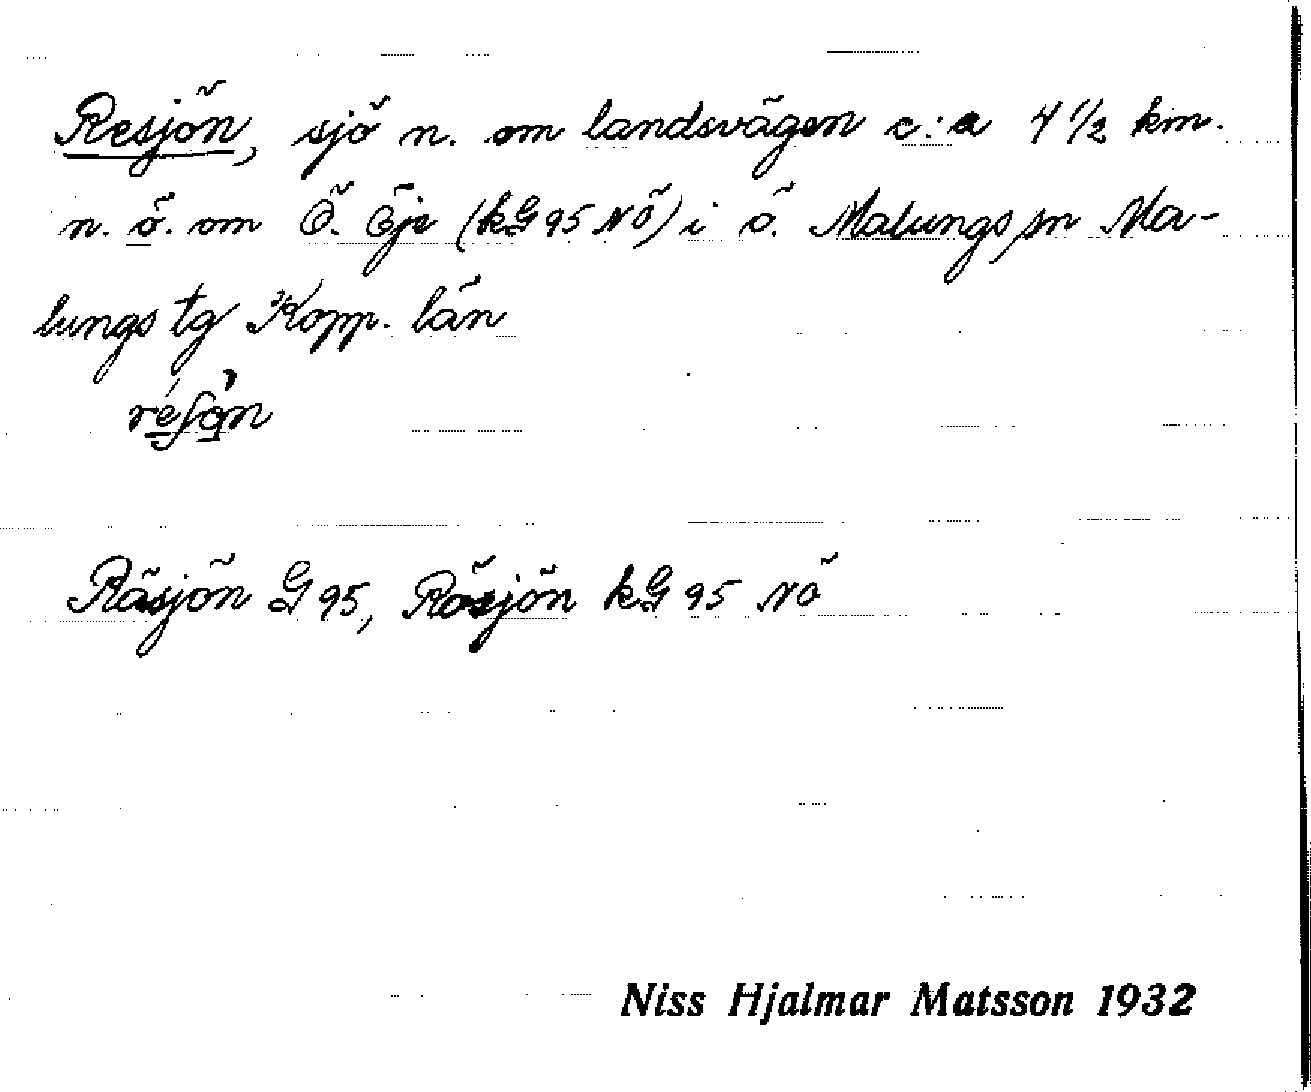 Resjön, sjö n. om landsvägen c:a 4 1/2 km.
n. ö. om Ö. Öje (kG95 NÖ) i ö. Malungs sn Ma-
lungs tg Kopp. län
Räsjön G 95, Räsjön kG 95 NÖ
Niss Hjalmar Matsson 1932